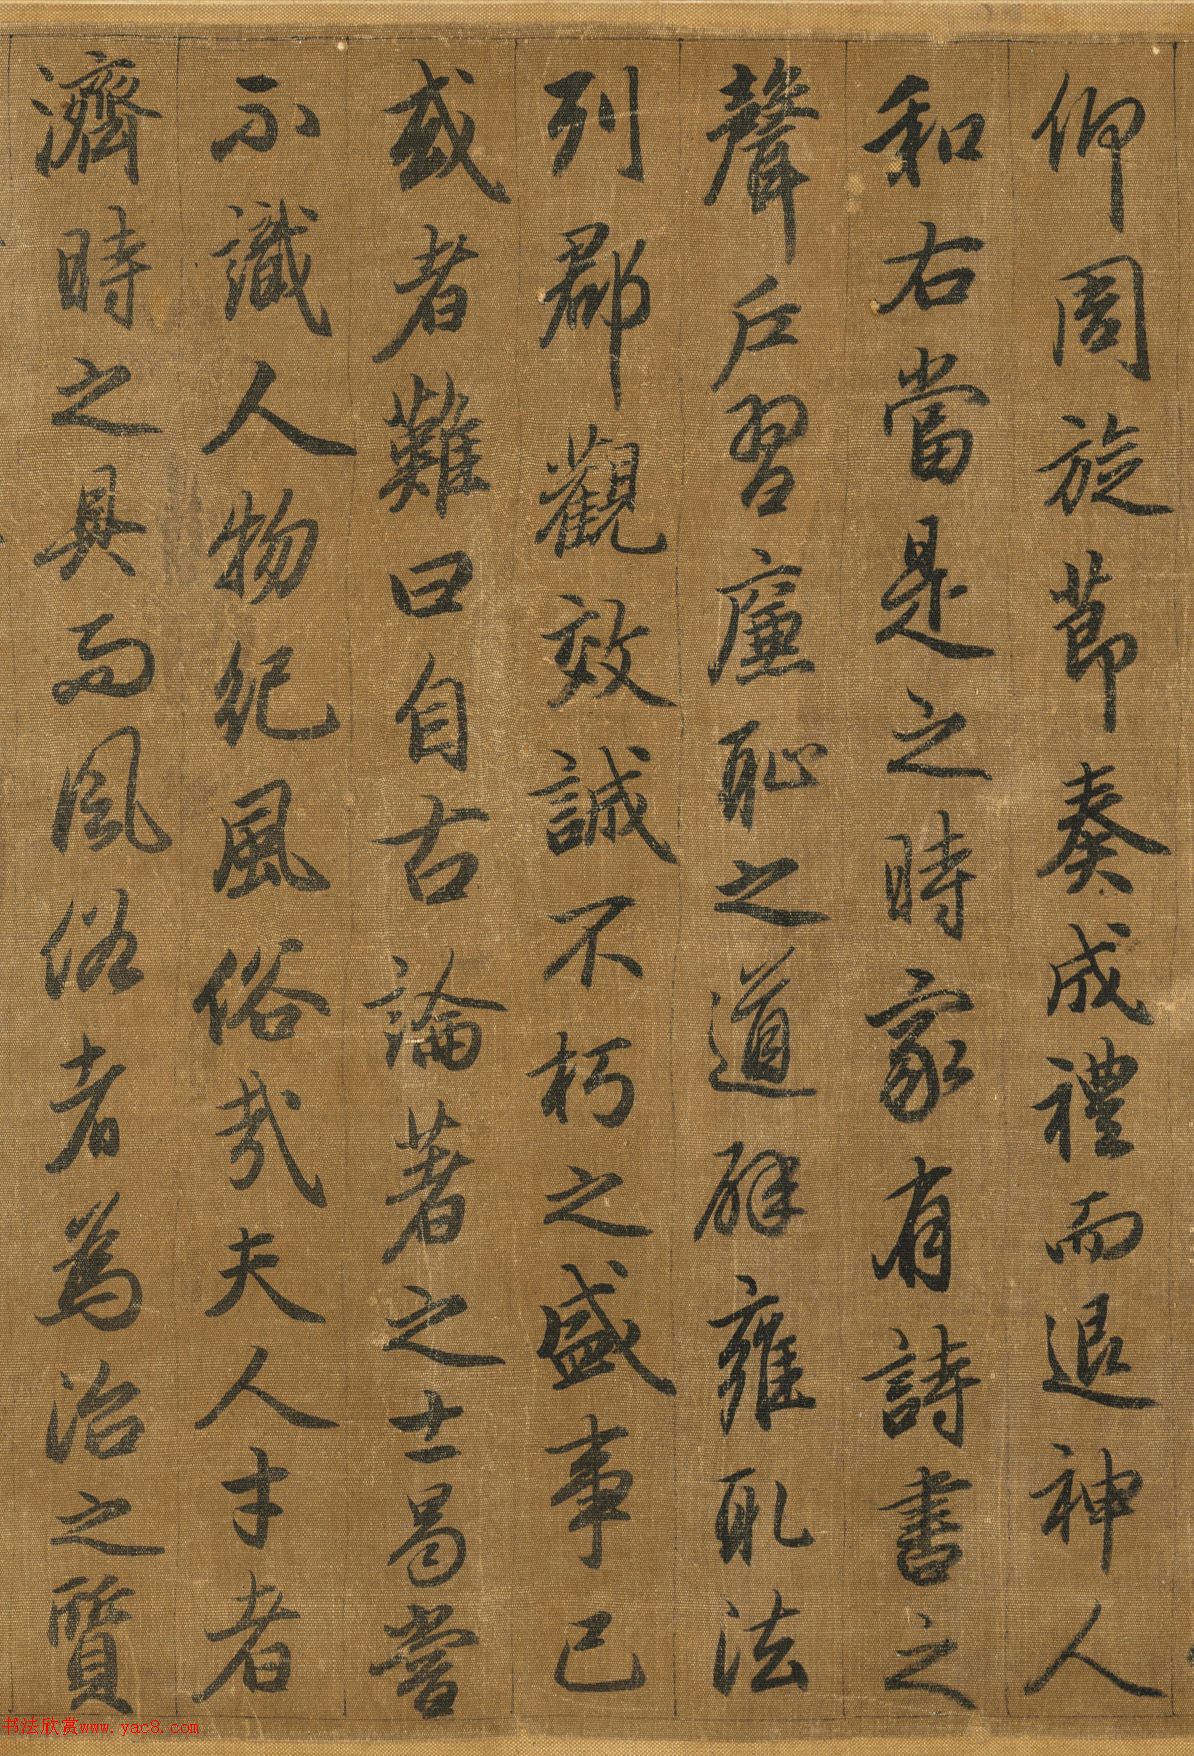 仰周旋節奏成禮而退神人
和右當是之時家有詩書之
聲戶習廉恥之道辟雍取法
列郡觀效誠不朽之盛事已
或者難曰自古論著之士曷嘗
不識人物紀風俗哉夫人才者
濟時之具而風俗者為治之質
书法欣赏www.yac8.com